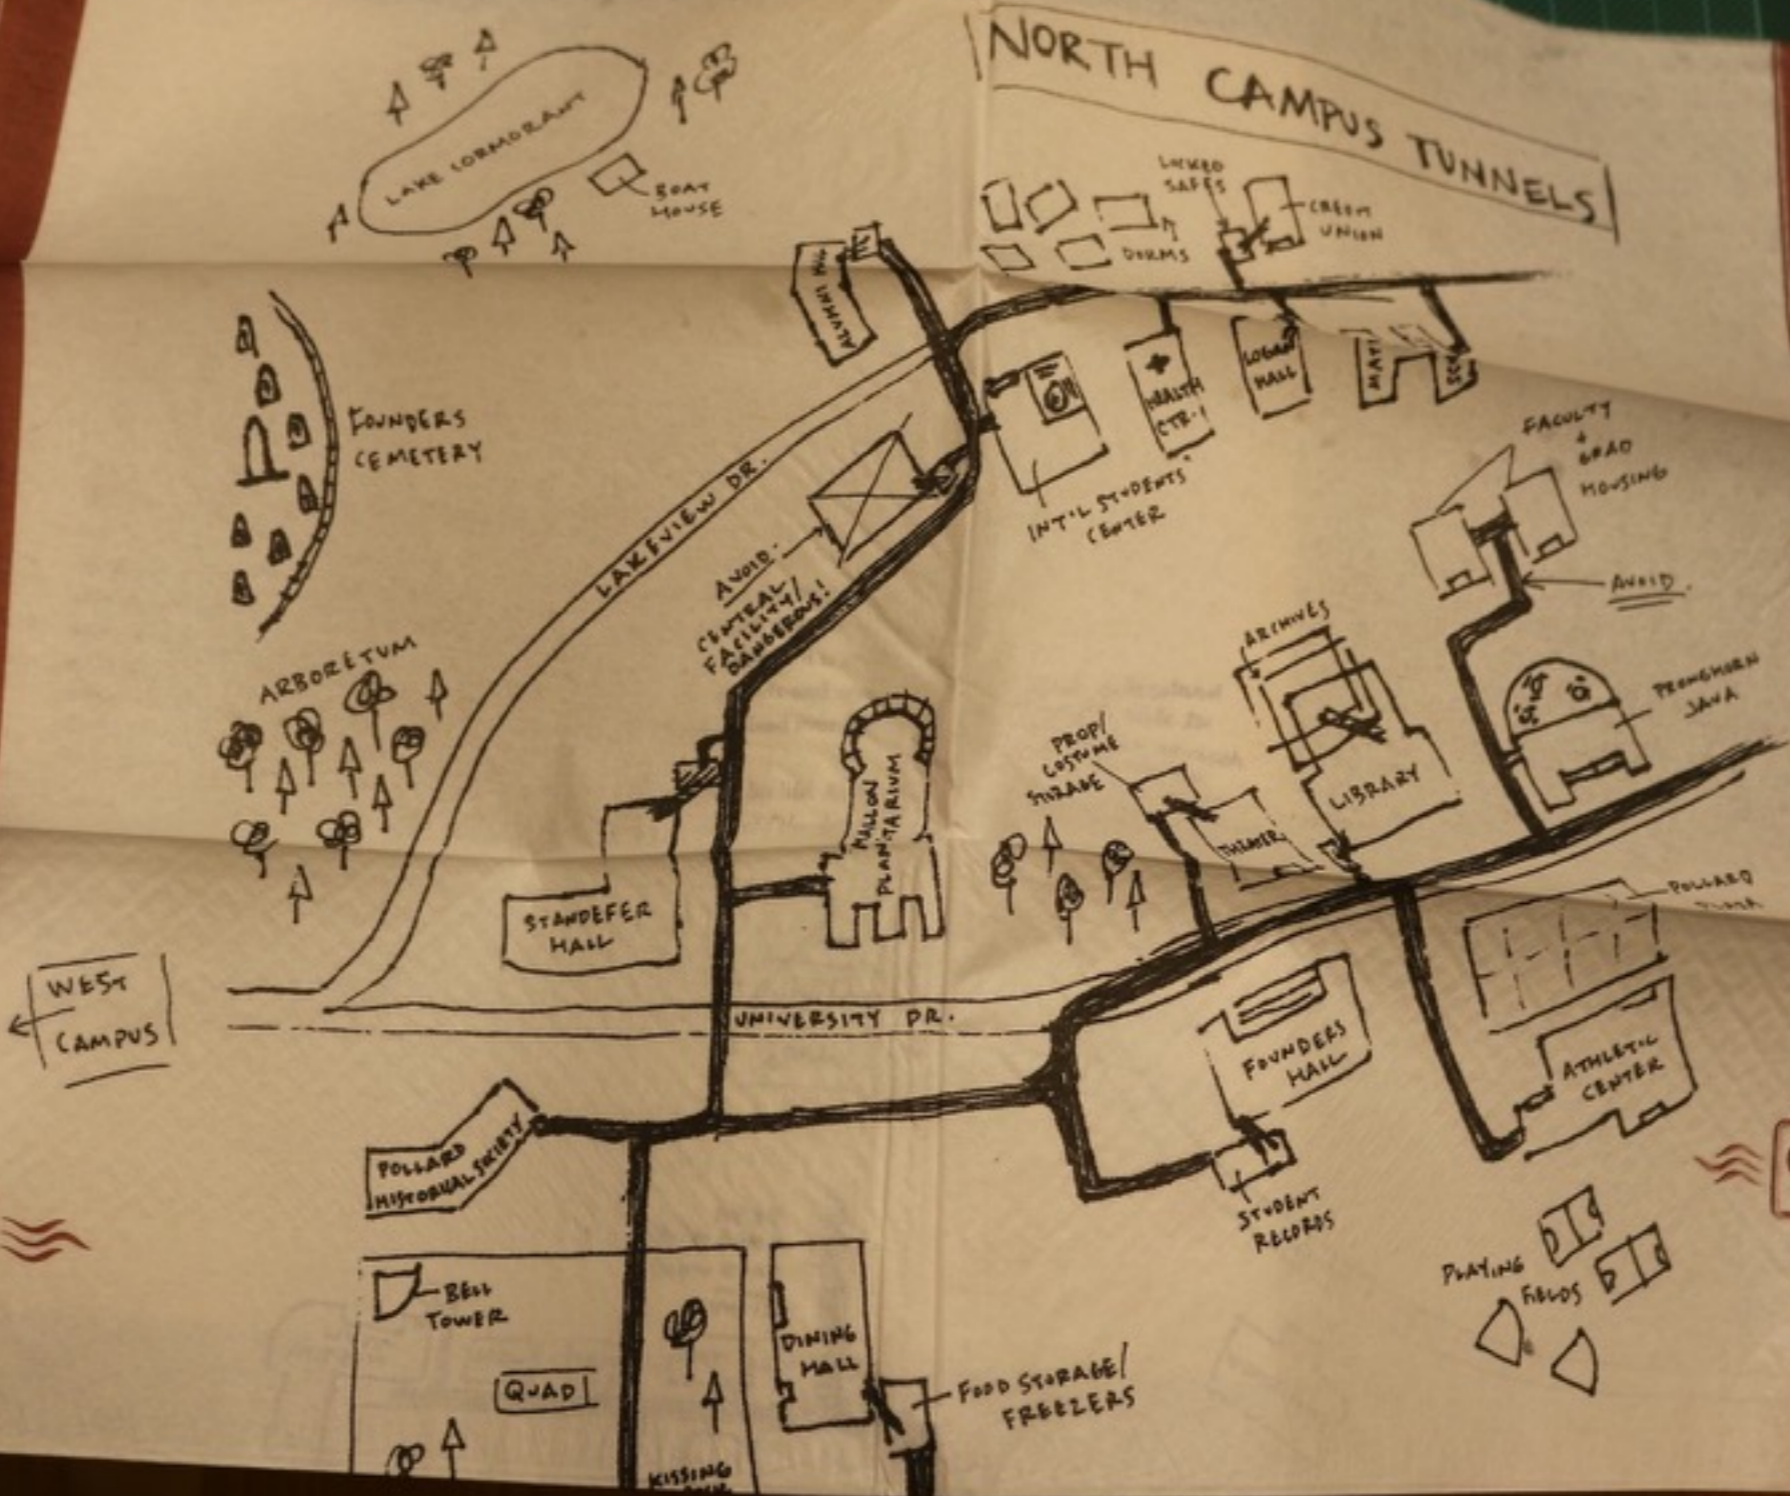 NORTH CAMPUS TUNNELS
LAKE CORMORANT
BOAT
HOUSE
LOCKED
SAFES
CREDIT
UNION
DORMS
ALUMNI
FOUNDERS
CEMETERY
LAKEVIEW DR.
HEALTH
CTR.
LOGAN
HALL
INT'L STUDENTS'
CENTER
FACULTY
+
GRAD
HOUSING
AVOID
AVOID
CENTRAL
FACILITY/
DANGEROUS!
ARBORETUM
ARCHIVES
PRONGHORN
JAVA
PROP/
COSTUME
STORAGE
LIBRARY
THEATER
MALLON
PLANITARIUM
STANDEFER
HALL
POLLARD
WEST
CAMPUS
UNIVERSITY DR.
FOUNDERS
HALL
ATHLETIC
CENTER
POLLARD
HISTORICAL SOCIETY
STUDENT
RECORDS
BELL
TOWER
PLAYING
FIELDS
DINING
HALL
QUAD
FOOD STORAGE/
FREEZERS
KISSING